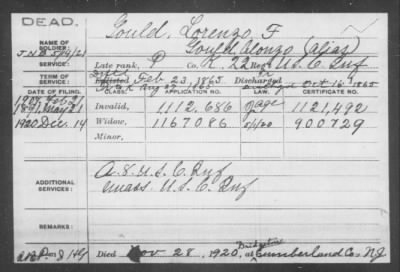 DEAD.
NAME OF SOLDIER: Gould, Lorenzo, F
Gould Alonzo (alias)
SERVICE: Late rank, P Co. K, 22 Reg't U.S.C. Inf
TERM OF SERVICE: Enlisted Feb 23, 1865 Discharged Oct 16 1865
DATE OF FILING. CLASS. APPLICATION NO. LAW. CERTIFICATE NO.
Invalid, 1,112,686 1,121,492
1920 Dec. 14 Widow, 1167086 900729
Minor,
ADDITIONAL SERVICES: U.S.C. Inf
Mass. U.S.C. Inf
REMARKS:
Died Nov 28, 1920, at Bridgeton Cumberland Co. NJ